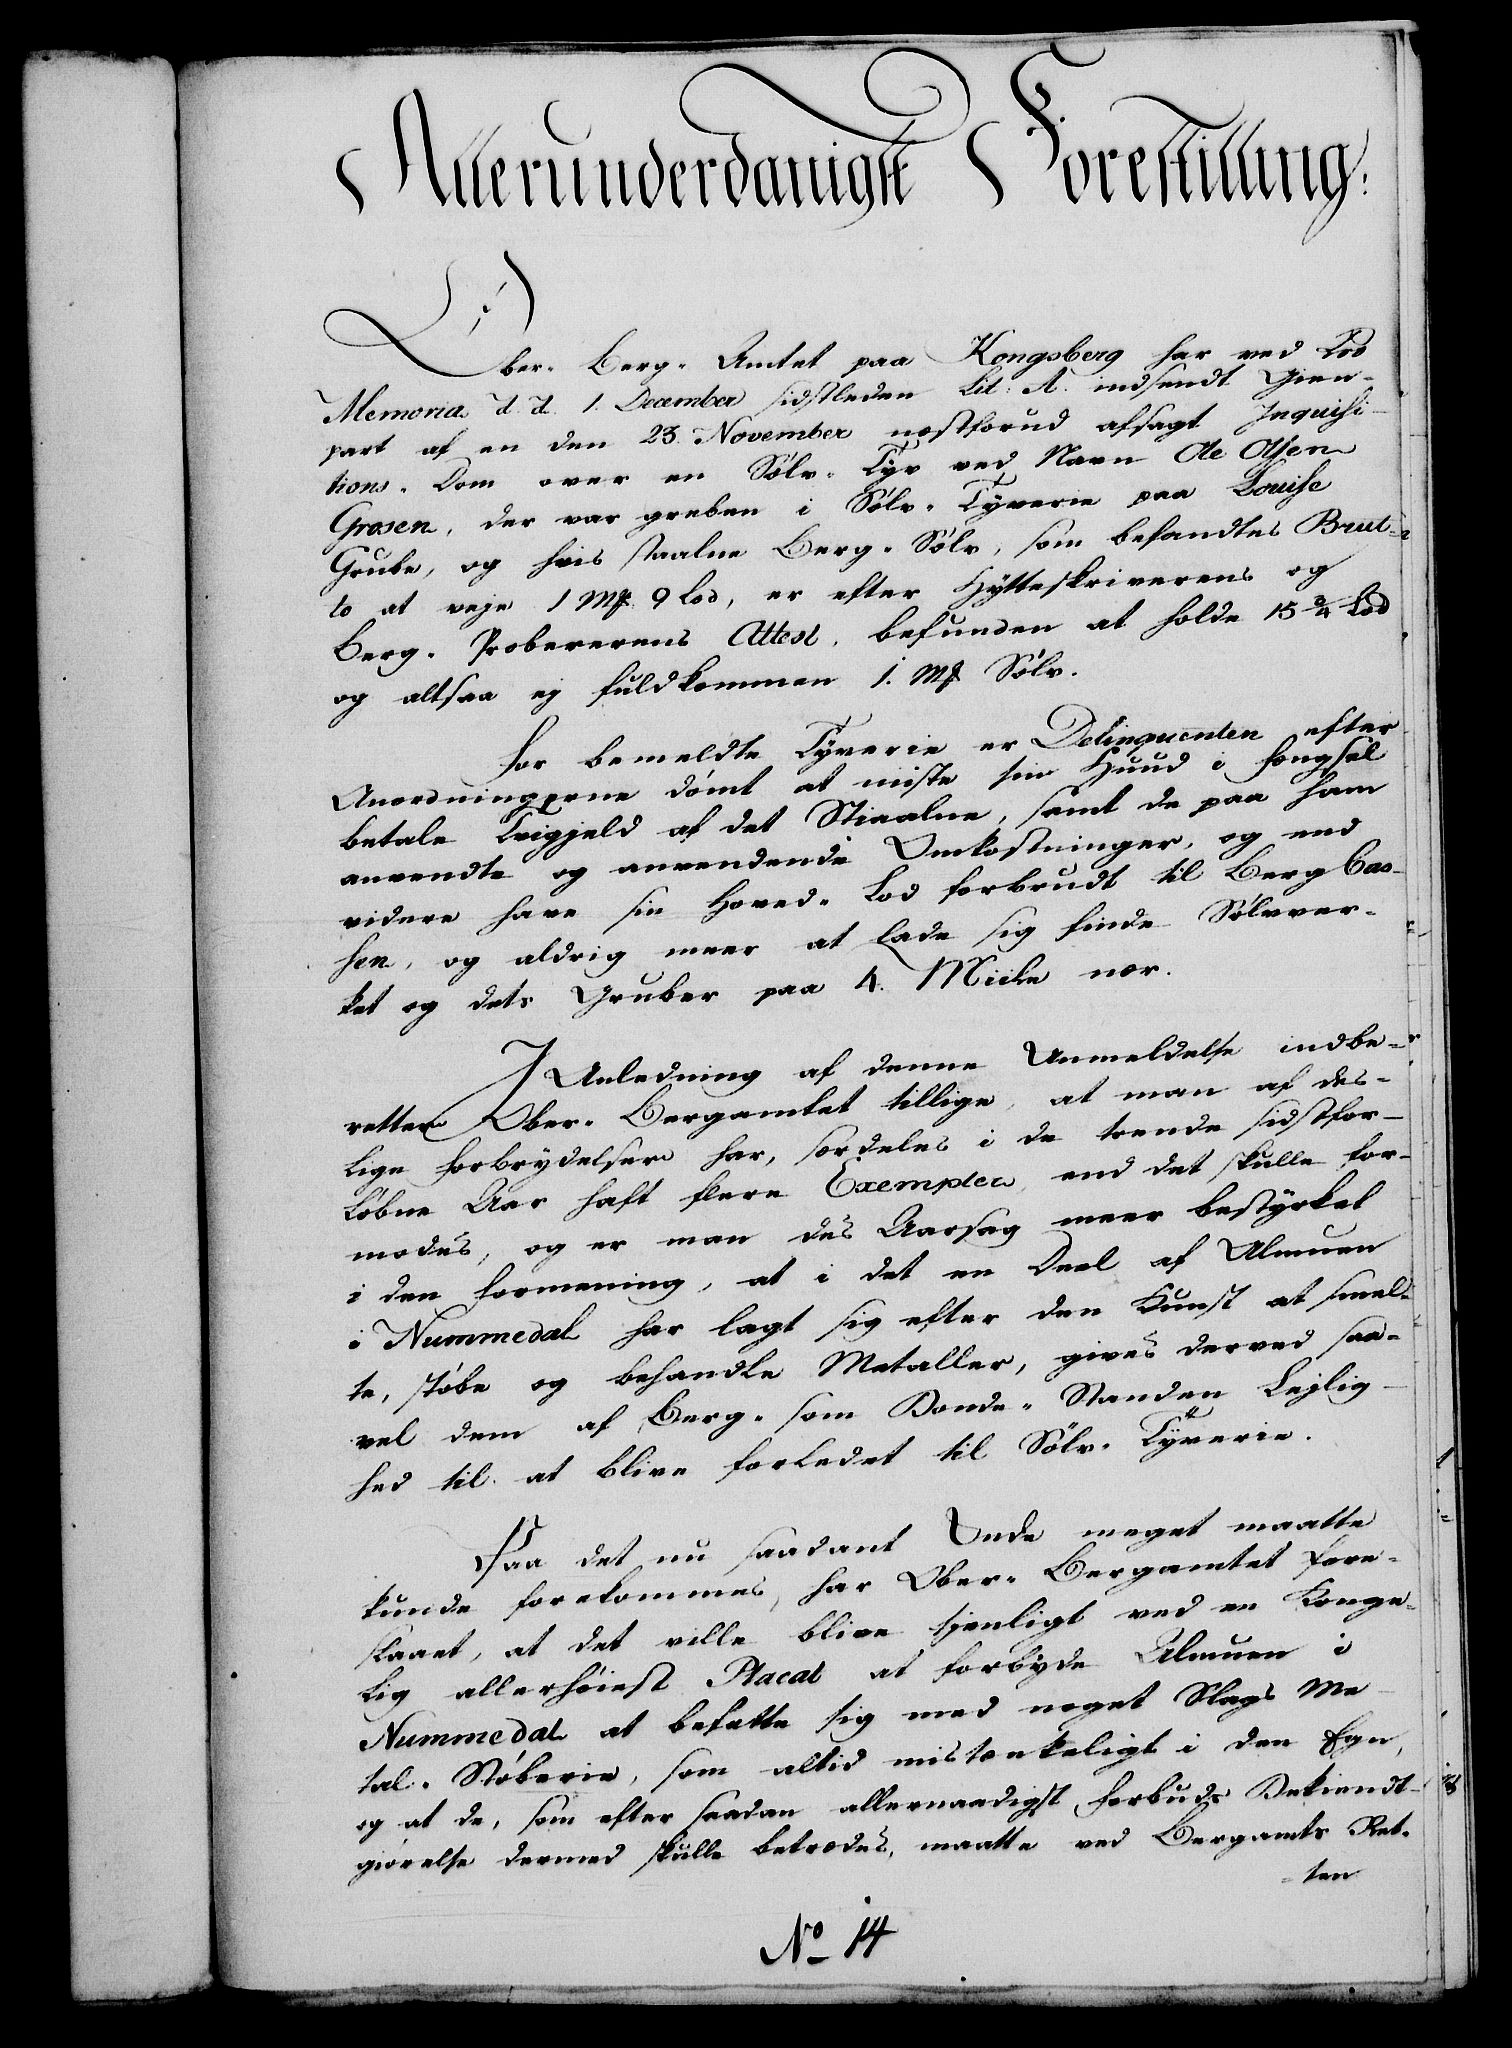 Allerunderdanigst Forestilling:
Ober- Berg- Amtet paa Kongsberg har ved
Memoria d. d. 1. December sidstleden Lit: A. indsendt Gien-
part af en den 23. November næstforud afsagt Inquisi-
tions- Dom over en Sølv- Tyv ved Navn Ole Olsen
Grosen, der var greben i Sølv- Tyverie paa Louise
Grube, og hvis staalne Berg- Sølv, som befandtes Brut-
to at veje 1 Mk 9 Lod, er efter Hytteskriverens og
Berg- Probererens Attest, befunden at holde 15 3/4 Lod
og altsaa ej fuldkommen 1. Mk Sølv.
For bemeldte Tyverie er Delinquenten efter
Anordningerne dømt at miste sin Huud i Fængsel
betale Tvigjeld af det Stiaalne, samt de paa ham
anvendte og anvendende Omkostninger, og end
videre have sin Hoved- Lod forbrudt til Berg Cas-
sen, og aldrig meer at lade sig finde Sølvver-
ket og dets Gruber paa 4. Miile nær.
I Anledning af denne Anmeldelse indbe-
retter Ober- Bergamtet tillige, at man af des-
lige Forbrydelser har, særdeles i de trende sidstfor-
løbne Aar haft flere Exempler, end det skulle for-
modes, og er man des Aarsag meer bestyrket
i den Formening, at i det en Deel af Almuen
i Nummedal har lagt sig efter den Kunst at smel-
te, støbe og behandle Metaller, gives derved saa-
vel dem af Berg- som Bonde- Standen Lejlig-
hed til at blive forledet til Sølv- Tyverie.
Paa det nu saadant Onde meget maatte
kunde forekommes, har Ober- Bergamtet fore-
slaaet, at det ville blive tjenligt ved en Konge-
lig allerhøiest Placat at forbyde Almuen i
Nummedal at befatte sig med noget Slags Me-
tal- Støberie, som altid mistænkeligt i den Egn,
og at de, som efter saadan allernaadigst Forbuds Bekiendt-
giørelse dermed skulle betrædes, maatte ved Bergamts Ret-
-ten
No 14